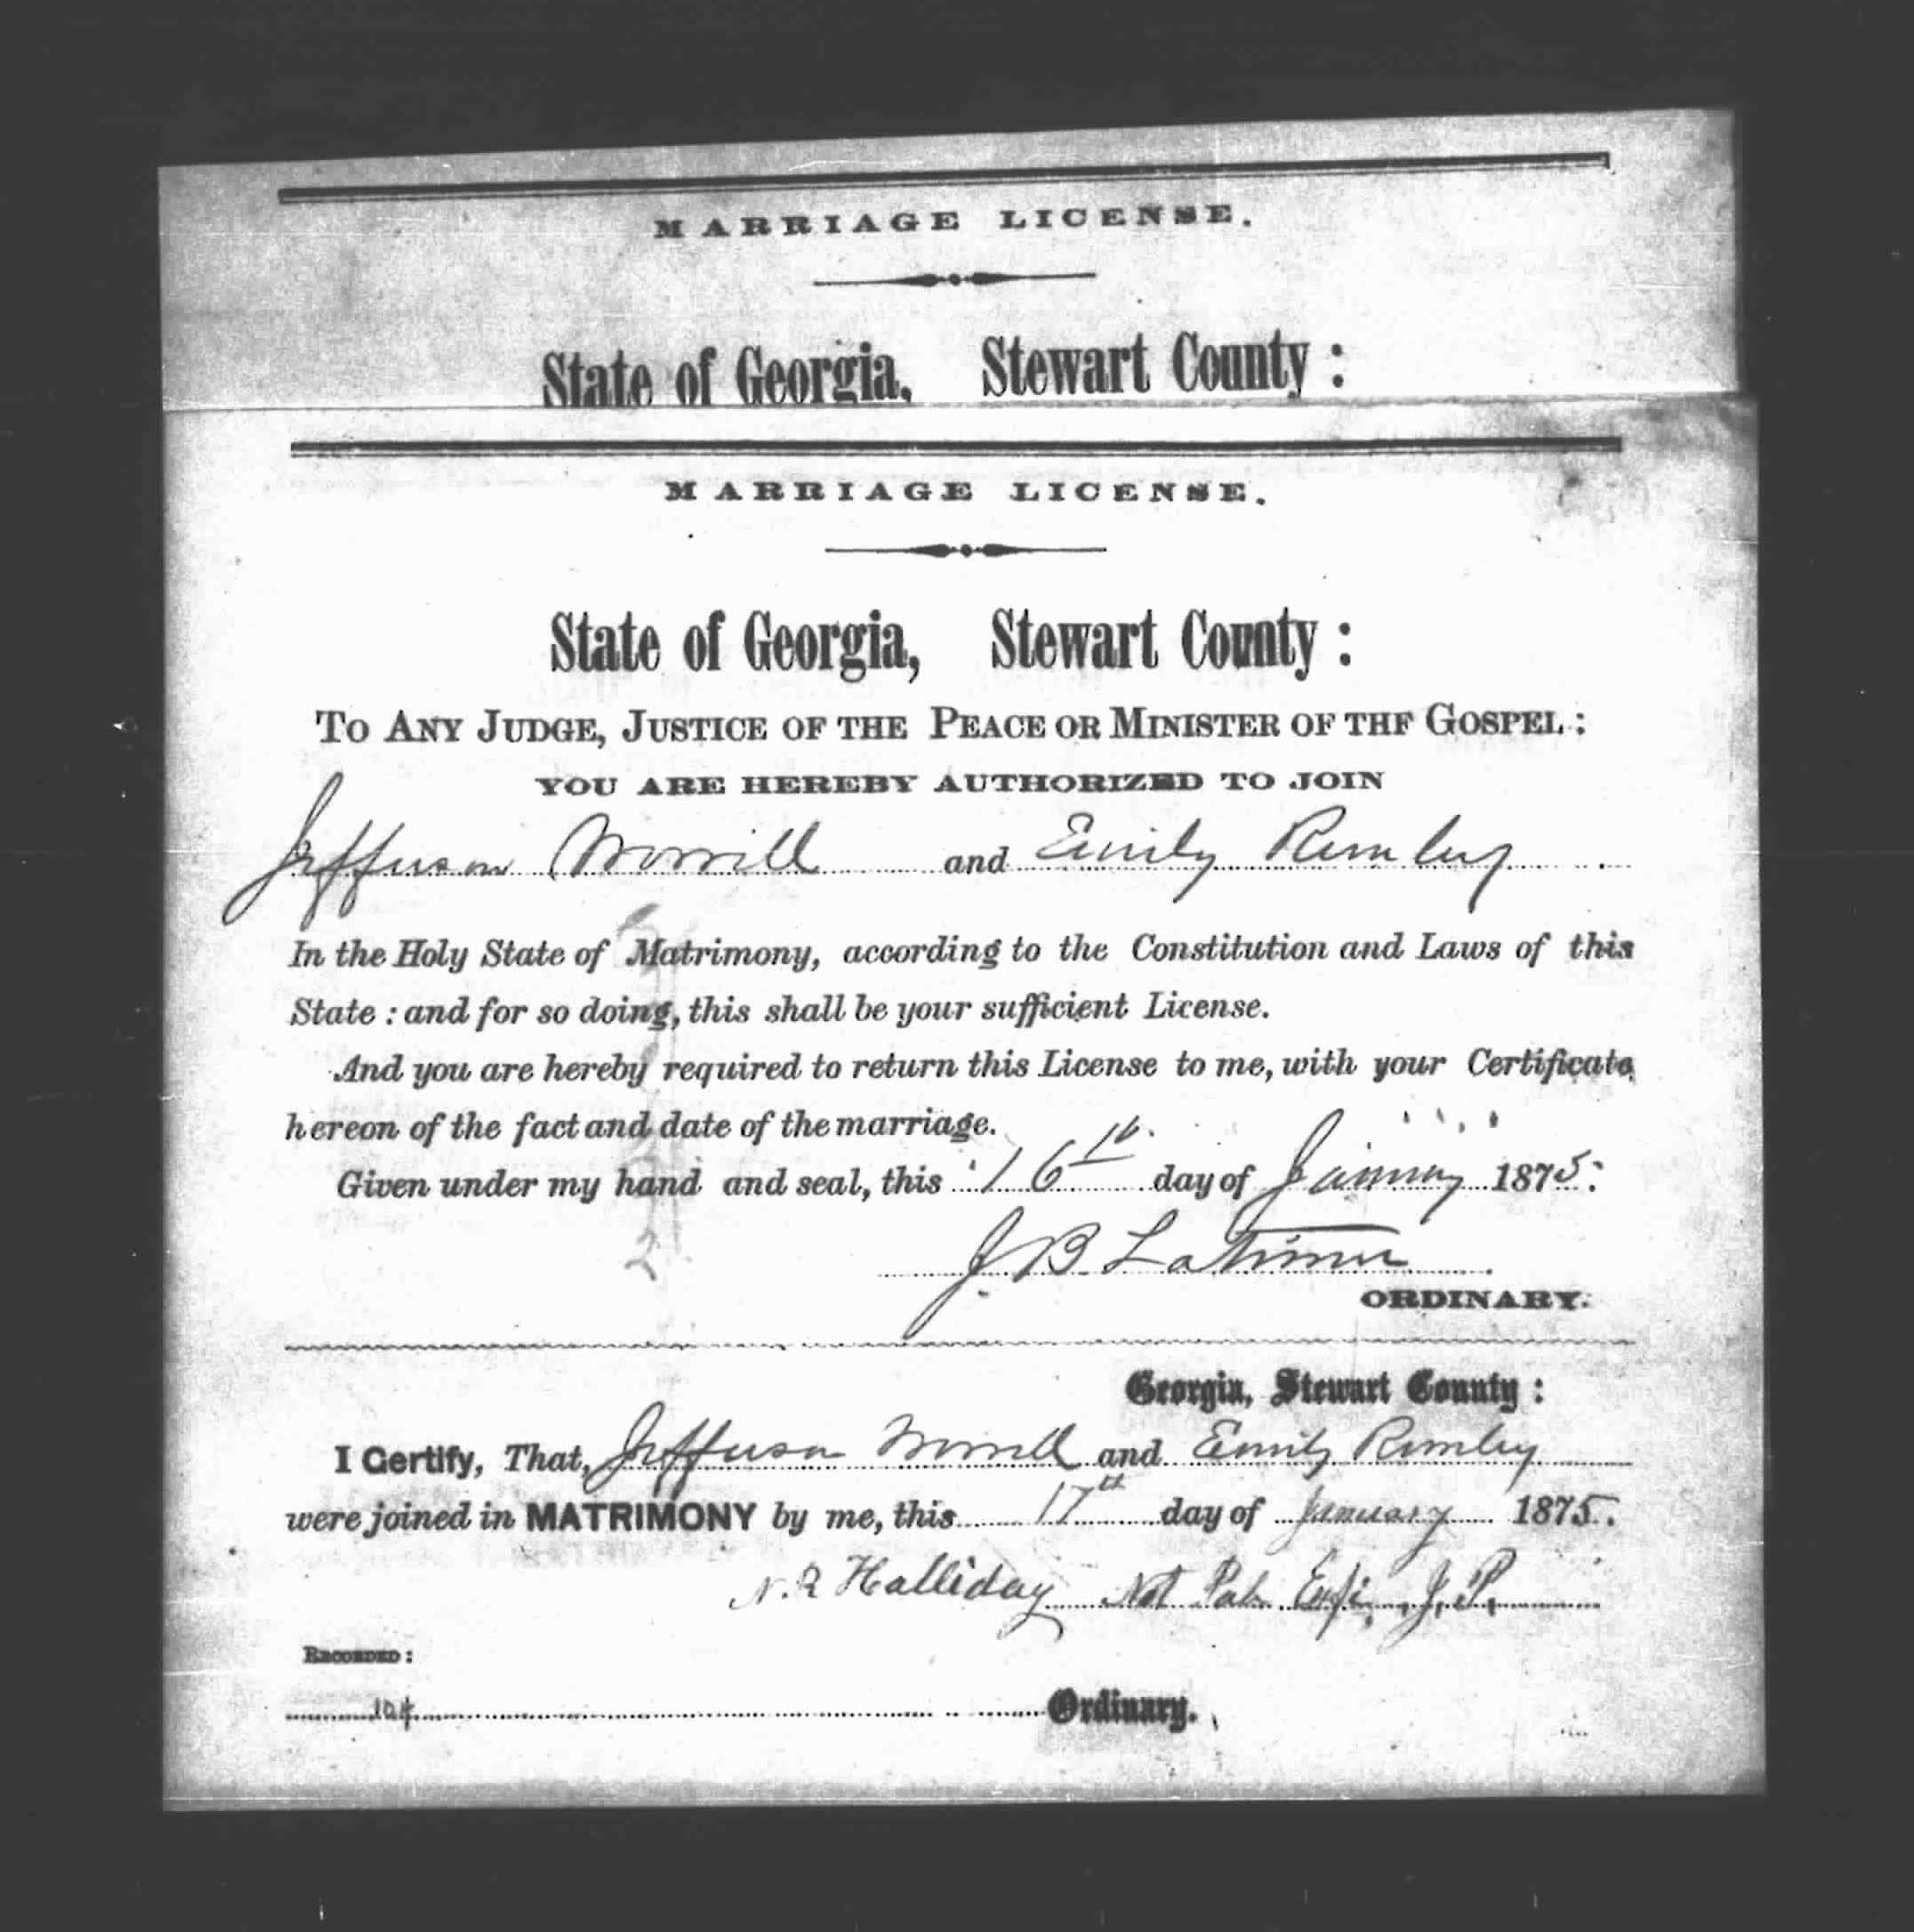 MARRIAGE LICENSE.
State of Georgia, Stewart County :
MARRIAGE LICENSE.
State of Georgia, Stewart County :
TO ANY JUDGE, JUSTICE OF THE PEACE OR MINISTER OF THF GOSPEL :
YOU ARE HEREBY AUTHORIZED TO JOIN
Jefferson Worrill and Emily Rumley
In the Holy State of Matrimony, according to the Constitution and Laws of this
State : and for so doing, this shall be your sufficient License.
And you are hereby required to return this License to me, with your Certificate
hereon of the fact and date of the marriage.
Given under my hand and seal, this 16th day of January 1875.
J. B Latimer
ORDINARY.
Georgia, Stewart County :
I Certify, That, Jefferson Worrill and Emily Rumley
were joined in MATRIMONY by me, this 17th day of January 1875.
Halliday Not Pub. J. P.
RECORDED :
104 Ordinary.